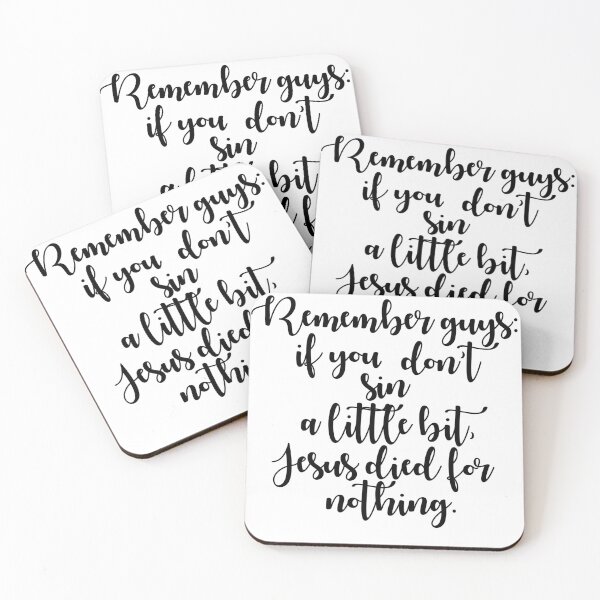 Remember guys:
if you don't
sin
a little bit,
Jesus died for
Remember guys:
if you don't
sin
a little bit,
Jesus died for
Remember guys:
if you don't
sin
a little bit,
Jesus died
nothin
Remember guys:
if you don't
sin
a little bit,
Jesus died for
nothing.